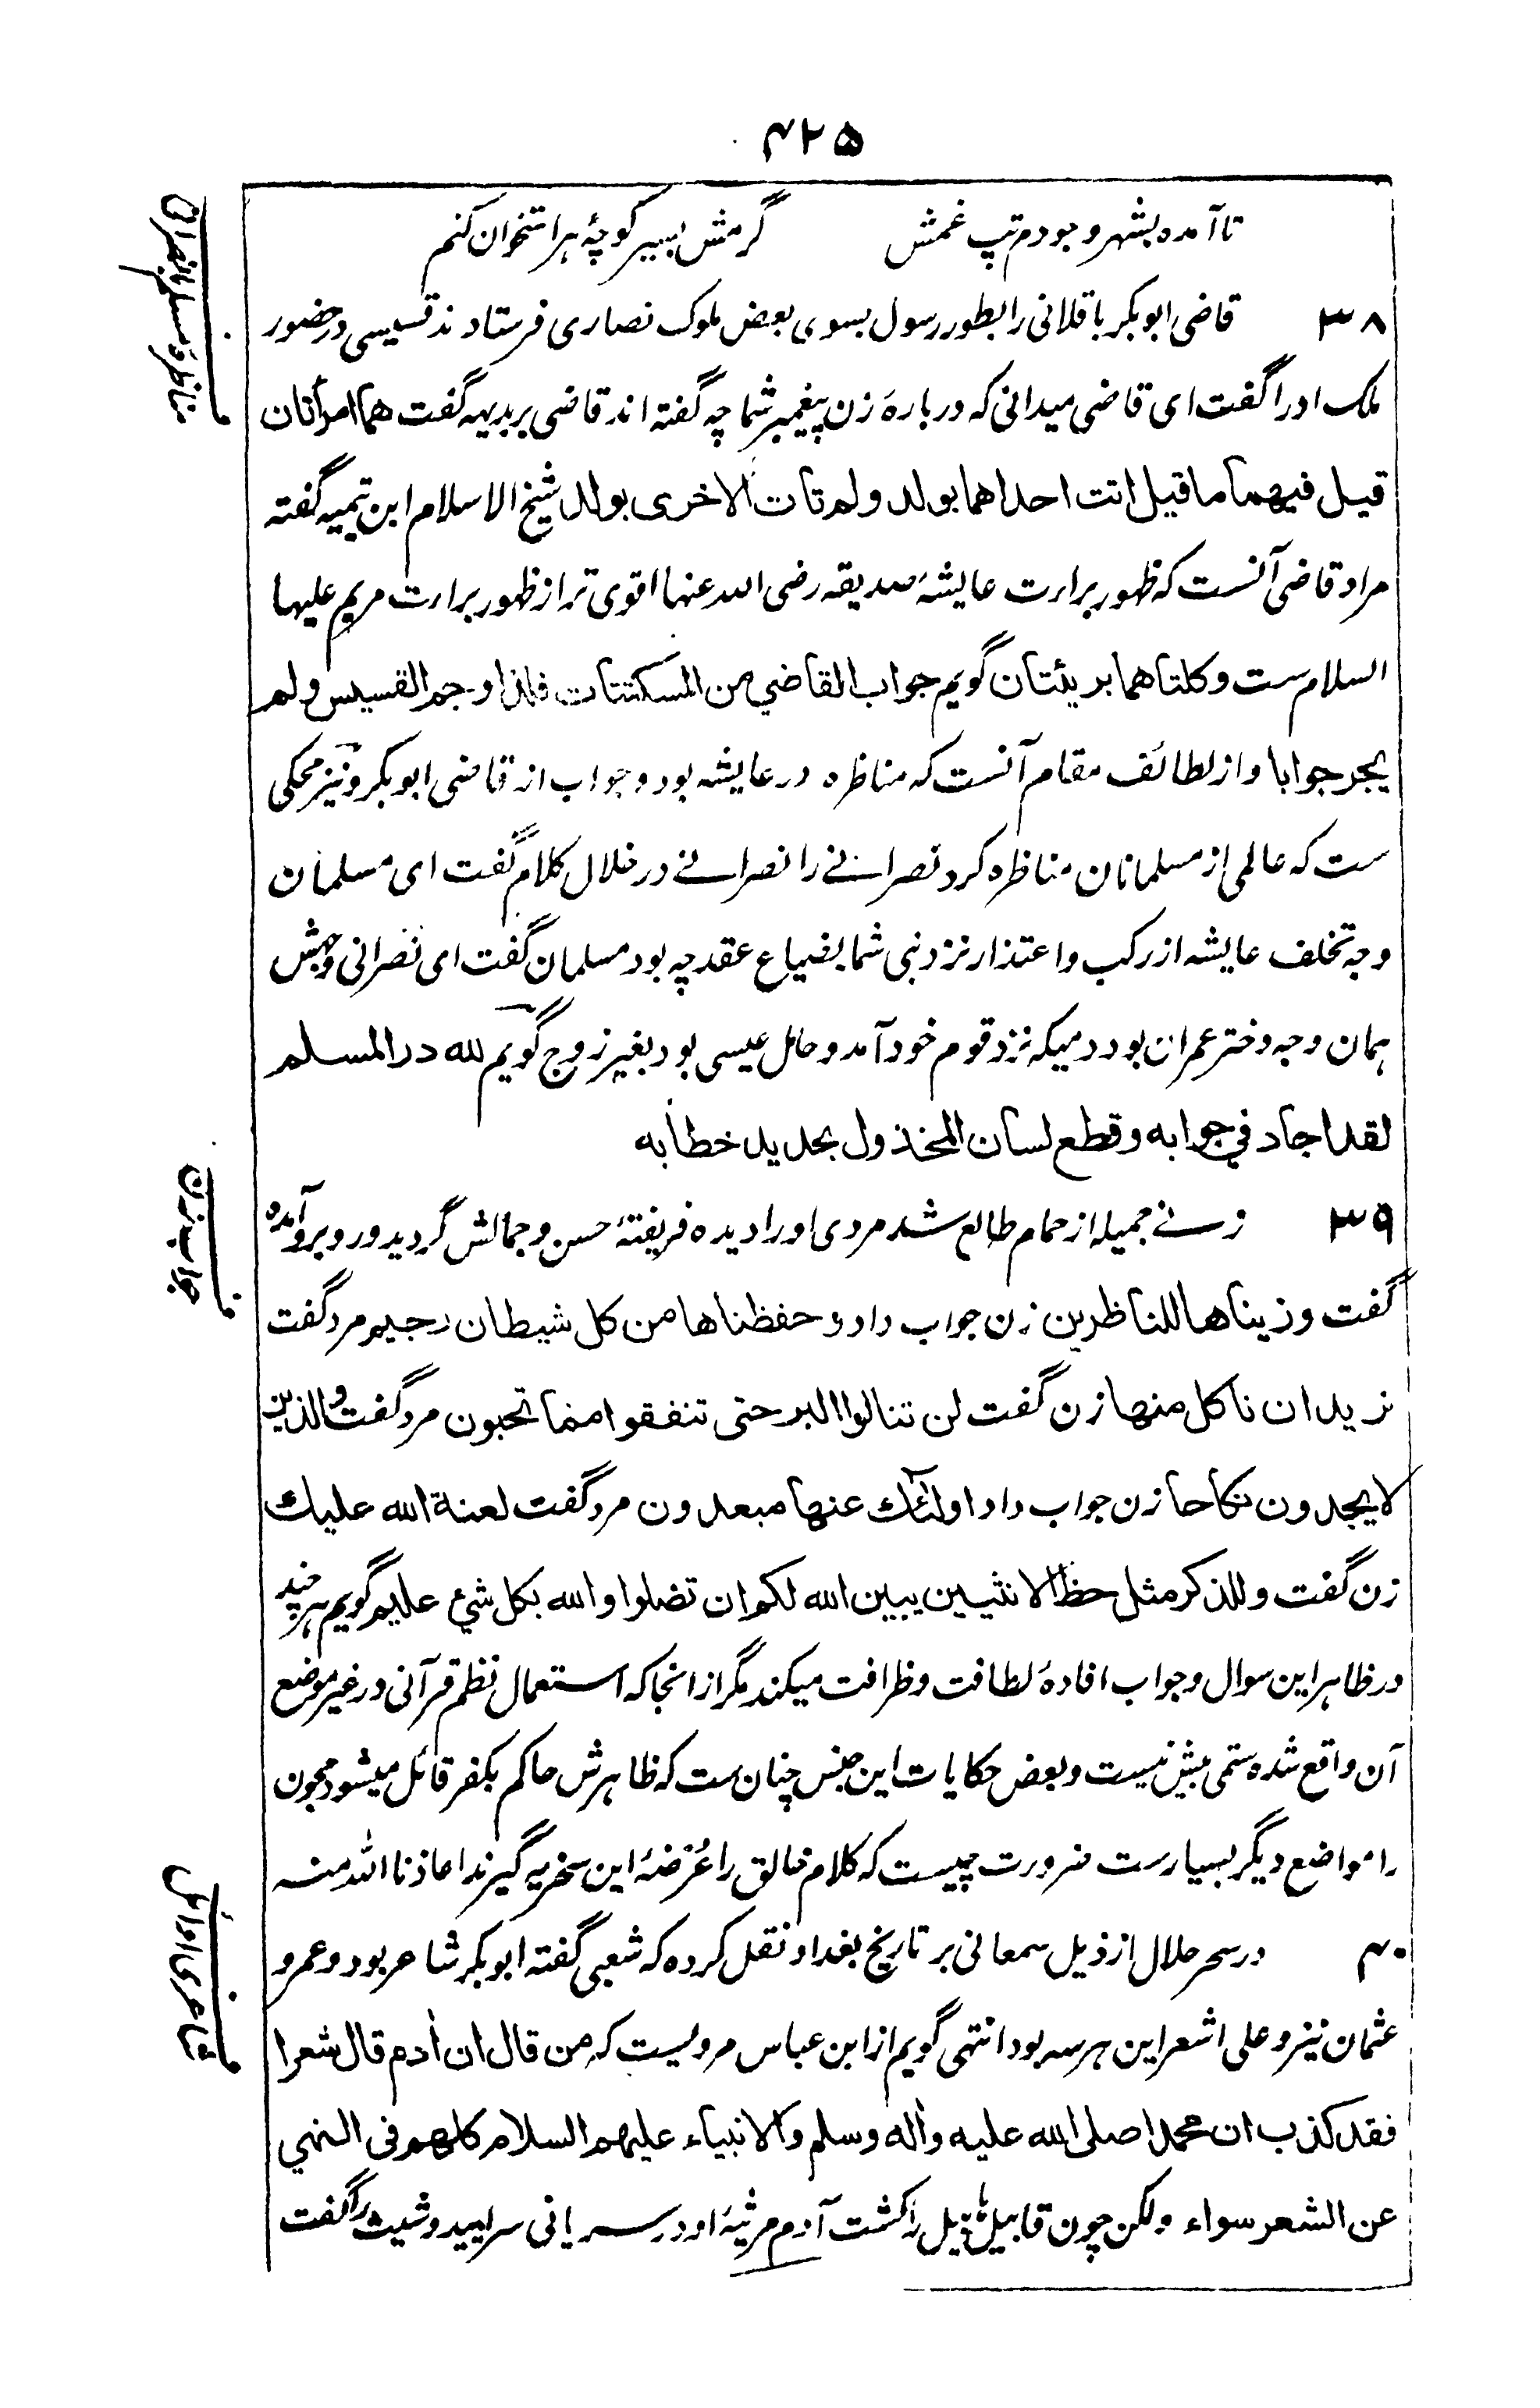 ۴۲۵
تا آمده بشهر وجودم تپ غمش گرمش بسیر کوچهٔ هر استخوان کنم
۳۸ قاضی ابوبکر باقلانی را بطور رسول بسوی بعض ملوک نصاری فرستادند قسیسی در حضور
ملک او را گفت ای قاضی میدانی که دربارهٔ زن پیغمبر شما چه گفته اند قاضی بر بدیهه گفت هما امرأتان
قیل فیهما ما قیل اتت احداهما بولد ولم تات الاخری بولد شیخ الاسلام ابن تیمیه گفته
مراد قاضی آنست که ظهور براءت عایشهٔ صدیقه رضی الله عنها اقوی تر از ظهور براءت مریم علیها
السلام ست وکلتاهما بریئتان گویم جواب القاضی من المسکتات فلذا وجم القسیس ولم
یحر جوابا و از لطائف مقام آنست که مناظره در عایشه بود و جواب از قاضی ابوبکر و نیز محکی
ست که عالمی از مسلمانان مناظره کرد نصرانی را نصرانی در خلال کلام گفت ای مسلمان
وجه تخلف عایشه از رکب و اعتذار نزد نبی شما بضیاع عقد چه بود مسلمان گفت ای نصرانی وجهش
همان وجه دختر عمران بود دمیکه نزد قوم خود آمد و حامل عیسی بود بغیر زوج گویم لله در المسلم
لقد اجاد فی جوابه وقطع لسان المخذول بحدید خطابه
۳۹ زنے جمیله از حمام طالع شد مردی او را دیده فریفتهٔ حسن و جمالش گردید و روبرو آمده
گفت وزیناها للناظرین زن جواب داد و حفظناها من کل شیطان رجیم مرد گفت
نرید ان ناکل منها زن گفت لن تنالوا البر حتی تنفقوا مما تحبون مرد گفت والذین
لا یجدون نکاحا زن جواب داد اولئک عنها مبعدون مرد گفت لعنة الله علیک
زن گفت وللذکر مثل حظ الانثیین یبین الله لکم ان تضلوا والله بکل شیء علیم گویم هر چند
در ظاهر این سوال و جواب افادهٔ لطافت و ظرافت میکند مگر از انجا که استعمال نظم قرآنی در غیر موضع
آن واقع شده ستمی بیش نیست و بعض حکایات این جنس چنان ست که ظاهرش حاکم بکفر قائل میشود مجون
را مواضع دیگر بسیارست ضرورت چیست که کلام خالق را عُرضهٔ این سخریه گیرند اعاذنا الله منه
۴۰ در سحر حلال از ذیل سمعانی بر تاریخ بغداد نقل کرده که شعبی گفته ابوبکر شاعر بود و عمر و
عثمان نیز و علی اشعر این هر سه بود انتهی گویم از ابن عباس مرویست که من قال ان أدم قال شعرا
فقد کذب ان محمدا صلی الله علیه وأله وسلم والانبیاء علیهم السلام کلهم فی النهی
عن الشعر سواء ولکن چون قابیل هابیل را کشت آدم مرثیهٔ او در سریانی سرایید و شیث را گفت
مناظرهٔ مسلم با نصرانی
جواب زن